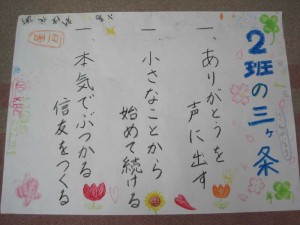 2班の三ヶ条
一、ありがとうを
声に出す
一、小さなことから
始めて続ける
一、本気でぶつかる
信友をつくる